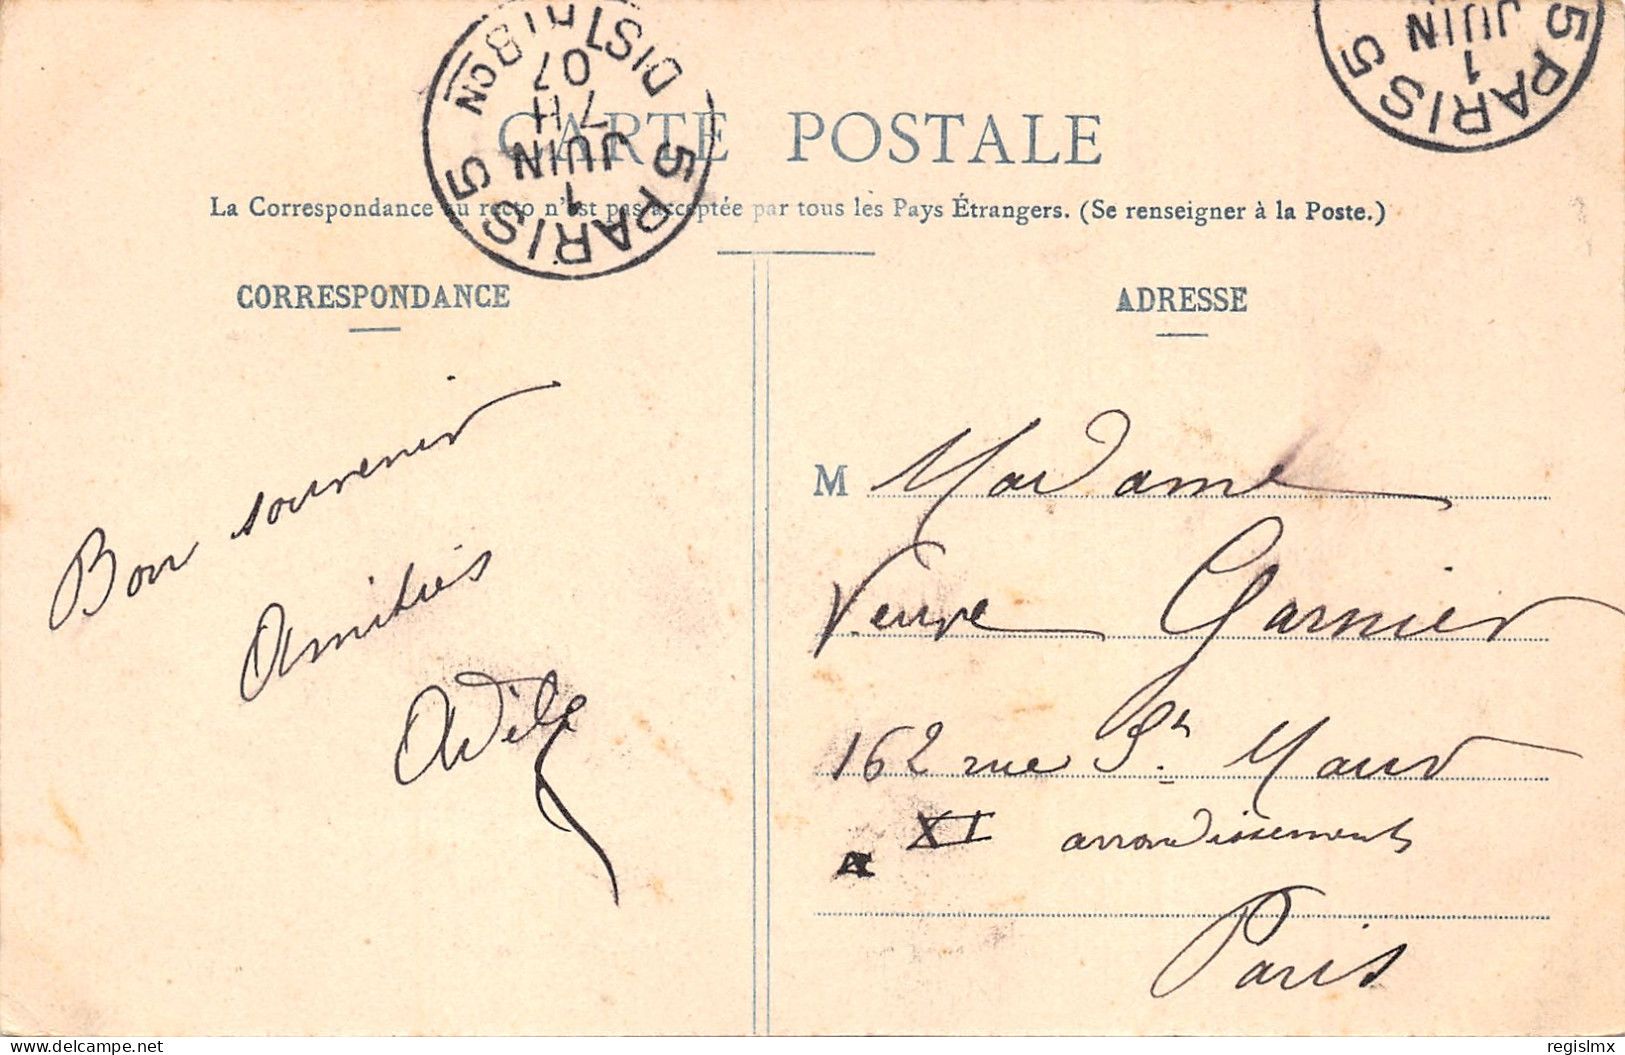 CARTE POSTALE
La Correspondance au recto n'est pas acceptée par tous les Pays Étrangers. (Se renseigner à la Poste.)
5 PARIS 5
1
JUIN
7 H
07
DISTRIBON
5 PARIS 5
1
JUIN
CORRESPONDANCE
Bon souvenir
Amitiés
Adèle
ADRESSE
M Madame
Veuve Garnier
162 rue St. Maur
XI arrondissement
Paris
delcampe.net
regislmx